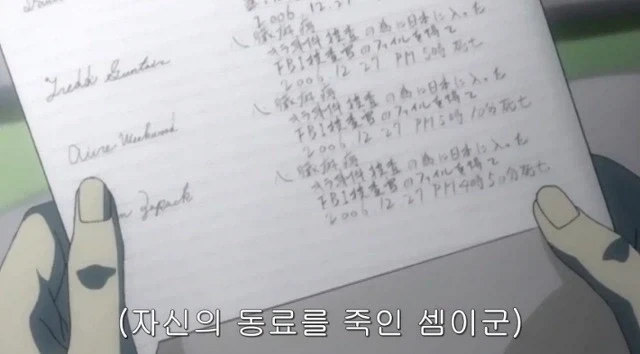 2006 12 27
心臓麻痺
キラ事件捜査の為に日本に入った
FBI捜査官のファイルを得て
2006 12 27 PM 5時 死亡
Fredd Guntair
心臓麻痺
キラ事件捜査の為に日本に入った
FBI捜査官のファイルを得て
2006 12 27 PM 5時 10分死亡
Arire Weekwood
心臓麻痺
キラ事件捜査の為に日本に入った
FBI捜査官のファイルを得て
2006 12 27 PM 4時 50分死亡
Zapack
(자신의 동료를 죽인 셈이군)